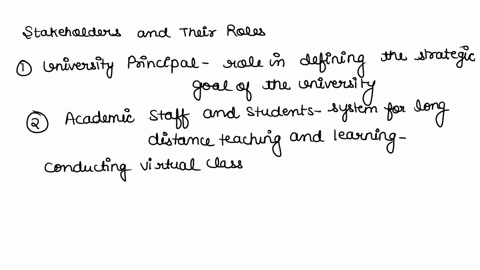 Stakeholders and Their Roles
① University Principal - role in defining the strategic
goal of the university
② Academic Staff and Students - system for long
distance teaching and learning -
conducting virtual class